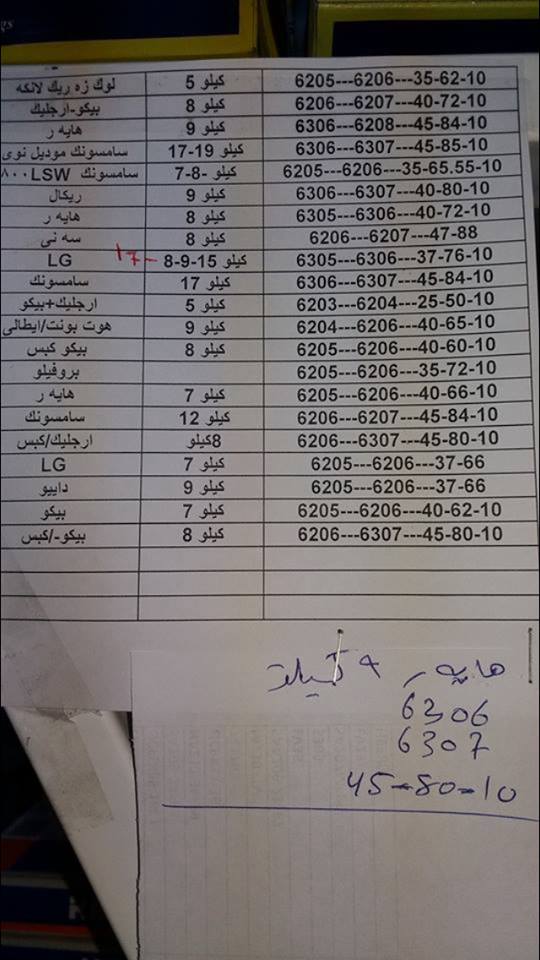 gs
لوك زه ريك لانكه 5 كيلو 6205---6206---35-62-10
بيكو-ارجليك 8 كيلو 6206---6207---40-72-10
هايه ر 9 كيلو 6306---6208---45-84-10
سامسونك موديل نوى 17-19 كيلو 6306---6307---45-85-10
سامسونك ٨٠٠LSW 7-8- كيلو 6205---6206---35-65.55-10
ريكال 9 كيلو 6306---6307---40-80-10
هايه ر 8 كيلو 6305---6306---40-72-10
سه نى 8 كيلو 6206---6207---47-88
LG 17- 8-9-15 كيلو 6305---6306---37-76-10
سامسونك 17 كيلو 6306---6307---45-84-10
ارجليك+بيكو 5 كيلو 6203---6204---25-50-10
هوت بونت/ايطالى 9 كيلو 6204---6206---40-65-10
بيكو كبس 8 كيلو 6205---6206---40-60-10
بروفيلو 6205---6206---35-72-10
هايه ر 7 كيلو 6205---6206---40-66-10
سامسونك 12 كيلو 6206---6207---45-84-10
ارجليك/كبس 8كيلو 6206---6307---45-80-10
LG 7 كيلو 6205---6206---37-66
داييو 9 كيلو 6205---6206---37-66
بيكو 7 كيلو 6205---6206---40-62-10
بيكو-/كبس 8 كيلو 6206---6307---45-80-10
هايه ر ٩ كيلو
6306
6307
45-80-10